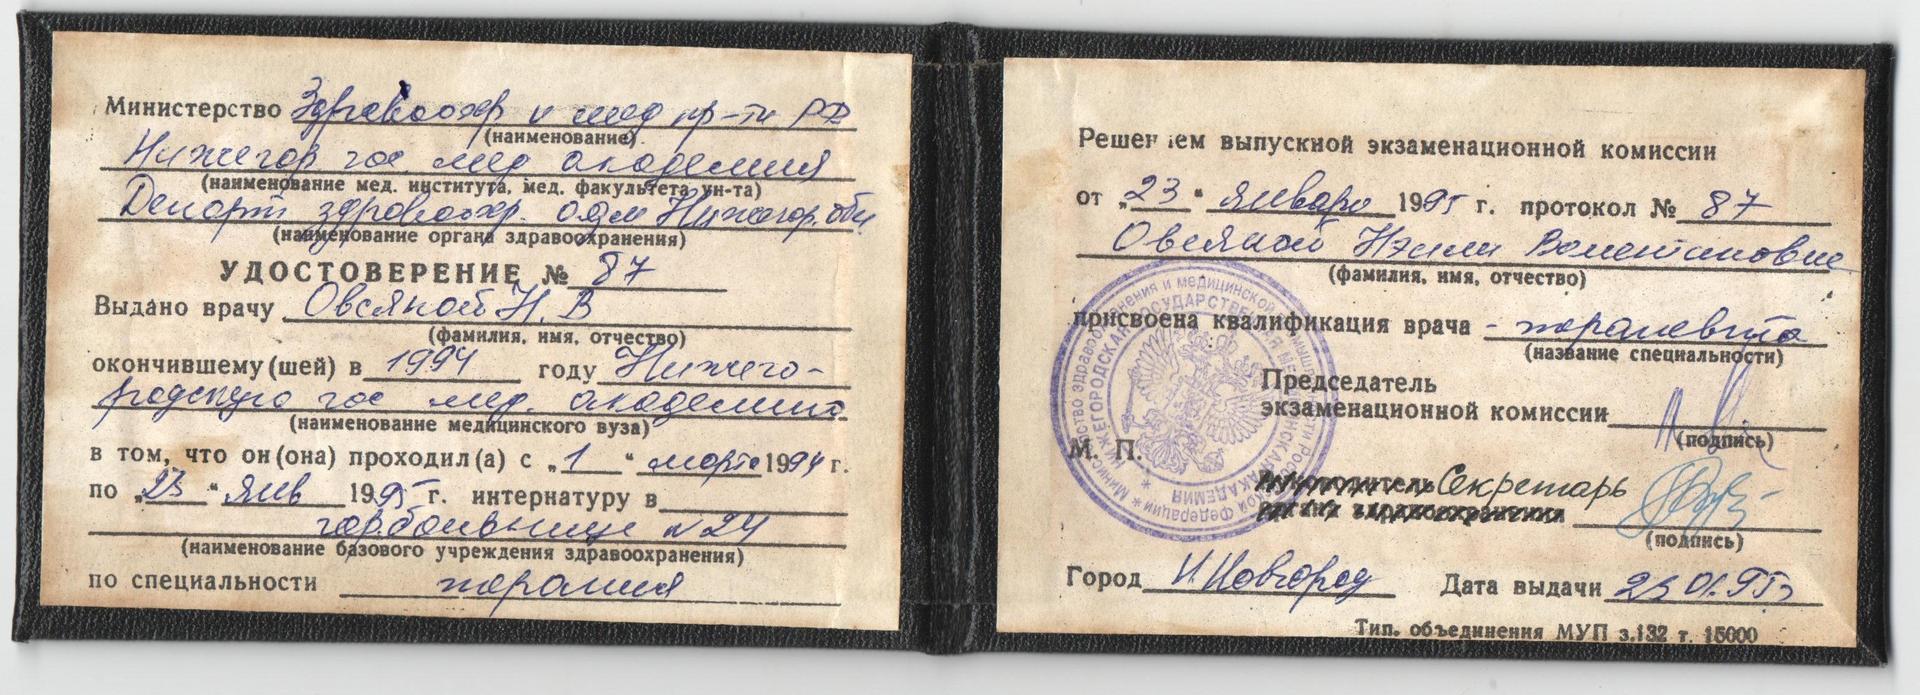 Министерство Здравоохр и мед пр-ти РФ
(наименование)
Нижегор гос мед академия
(наименование мед. института, мед. факультета ун-та)
Департ здравоохр. адм Нижегор. обл
(наименование органа здравоохранения)
УДОСТОВЕРЕНИЕ № 87
Выдано врачу Овсяной Н. В
(фамилия, имя, отчество)
окончившему (шей) в 1994 году Нижего-
родскую гос мед. академию
(наименование медицинского вуза)
в том, что он (она) проходил(а) с „1“ марта 1994 г.
по „23“ янв 1995 г. интернатуру в
горбольнице N24
(наименование базового учреждения здравоохранения)
по специальности терапия
Решением выпускной экзаменационной комиссии
от „23“ января 1995 г. протокол № 87
Овсяной Нэлли Валентиновне
(фамилия, имя, отчество)
присвоена квалификация врача - терапевта
(название специальности)
Председатель
экзаменационной комиссии
(подпись)
М. П.
Секретарь
(подпись)
Город Н. Новгород Дата выдачи 23 01.95г
Тип. объединения МУП з.132 т. 15000
НИЖЕГОРОДСКАЯ ГОСУДАРСТВЕННАЯ МЕДИЦИНСКАЯ АКАДЕМИЯ
Министерство здравоохранения и медицинской промышленности Российской Федерации